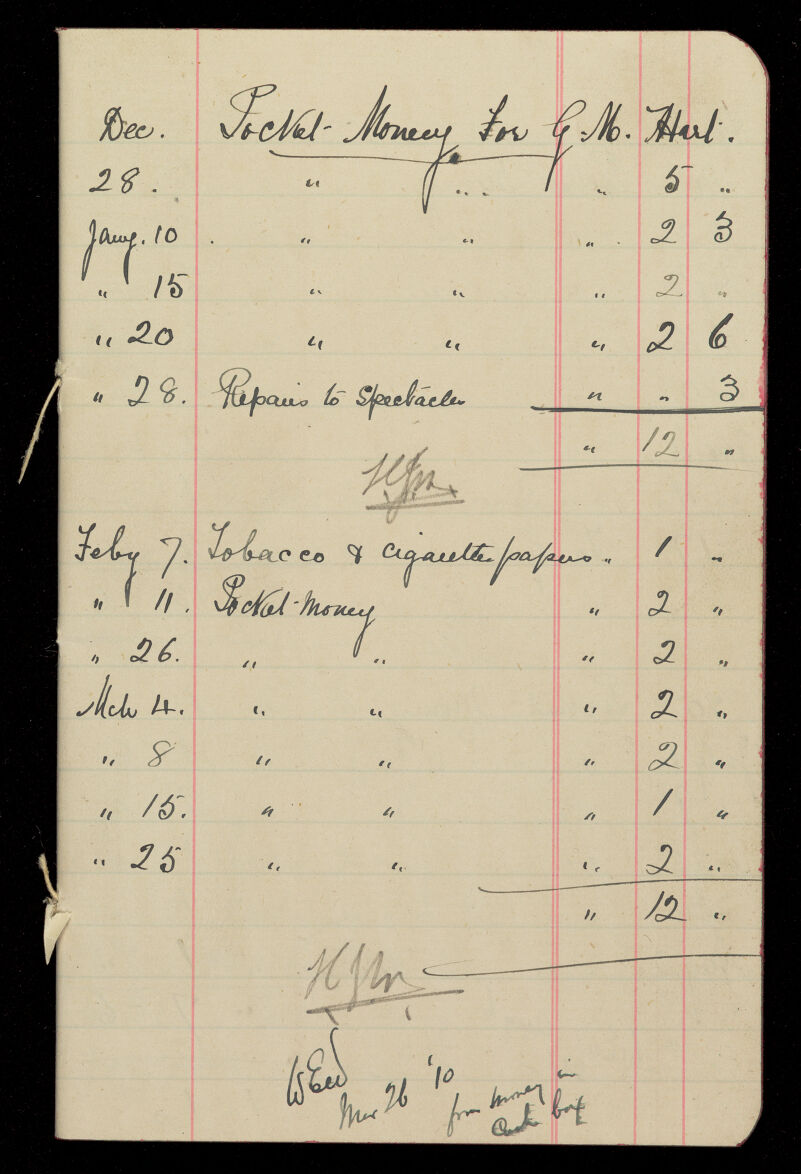 Dec. Pocket-Money For G. M. Hart.
28. " " " 5 "
Jany. 10 . " " " . 2 3
" 15 " " " 2 "
" 20 " " " 2 6
" 28. Repairs to Spectacles " " 3
" 12 "
Feby 7. Tobacco & Cigarette papers " 1 "
" 11. Pocket-Money " 2 "
" 26. " " " 2 "
Mch 4. " " " 2 "
" 8 " " " 2 "
" 15. " " " 1 "
" 25 " " " 2 "
" 12 "
Mar 26 '10
from money in
box